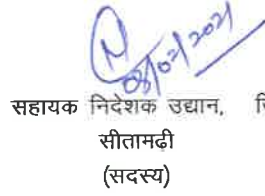 08/02/2021
सहायक निदेशक उद्यान,
सीतामढी
(सदस्य)